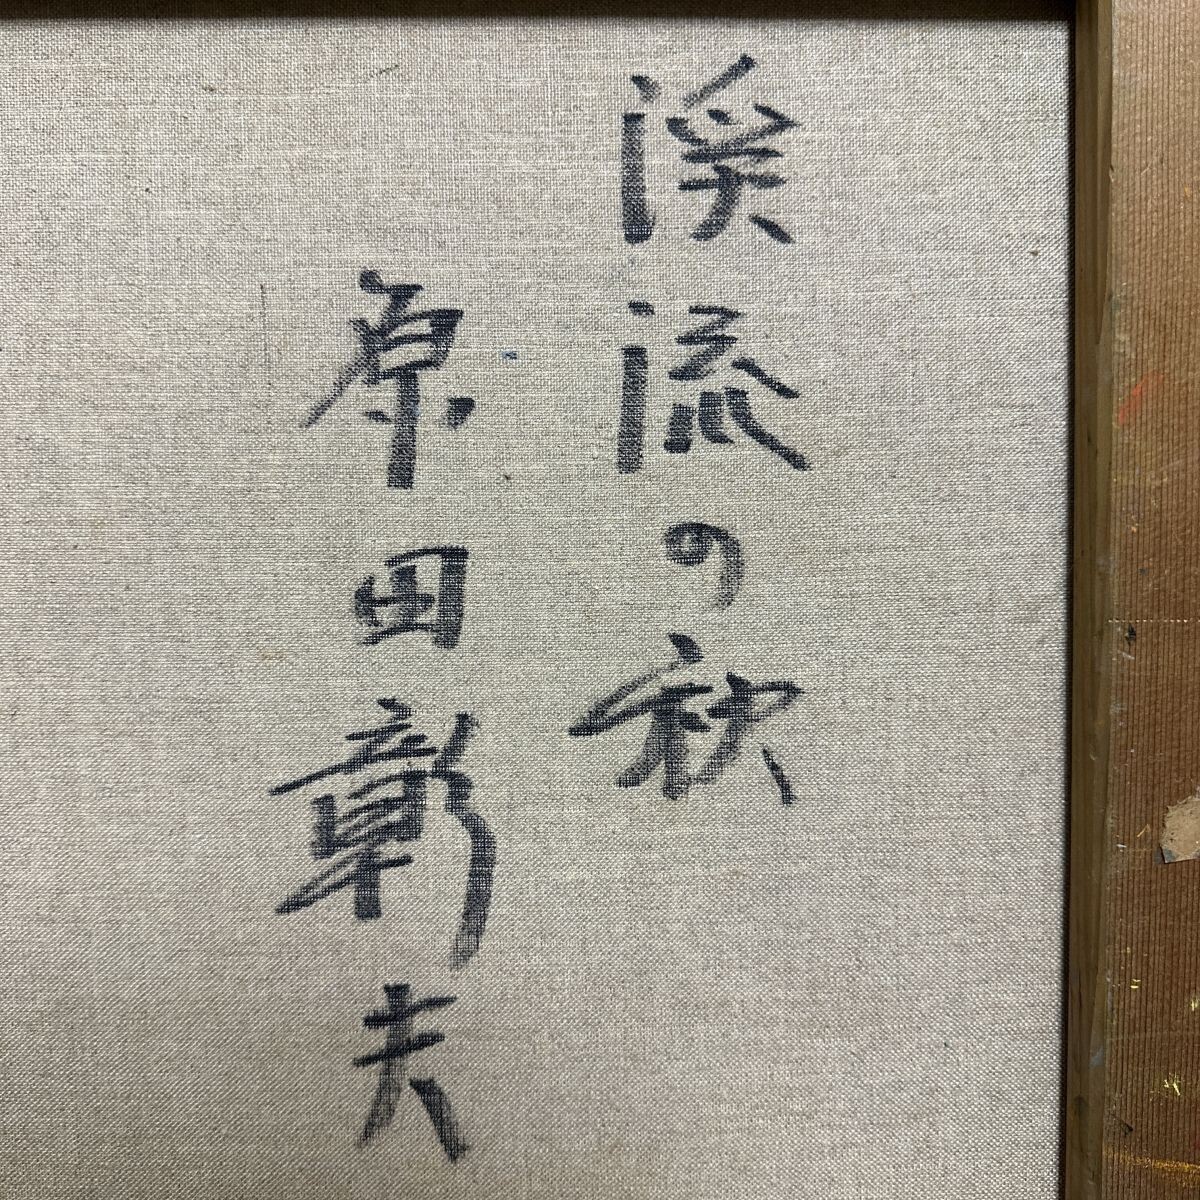 渓流の秋
原田彰夫